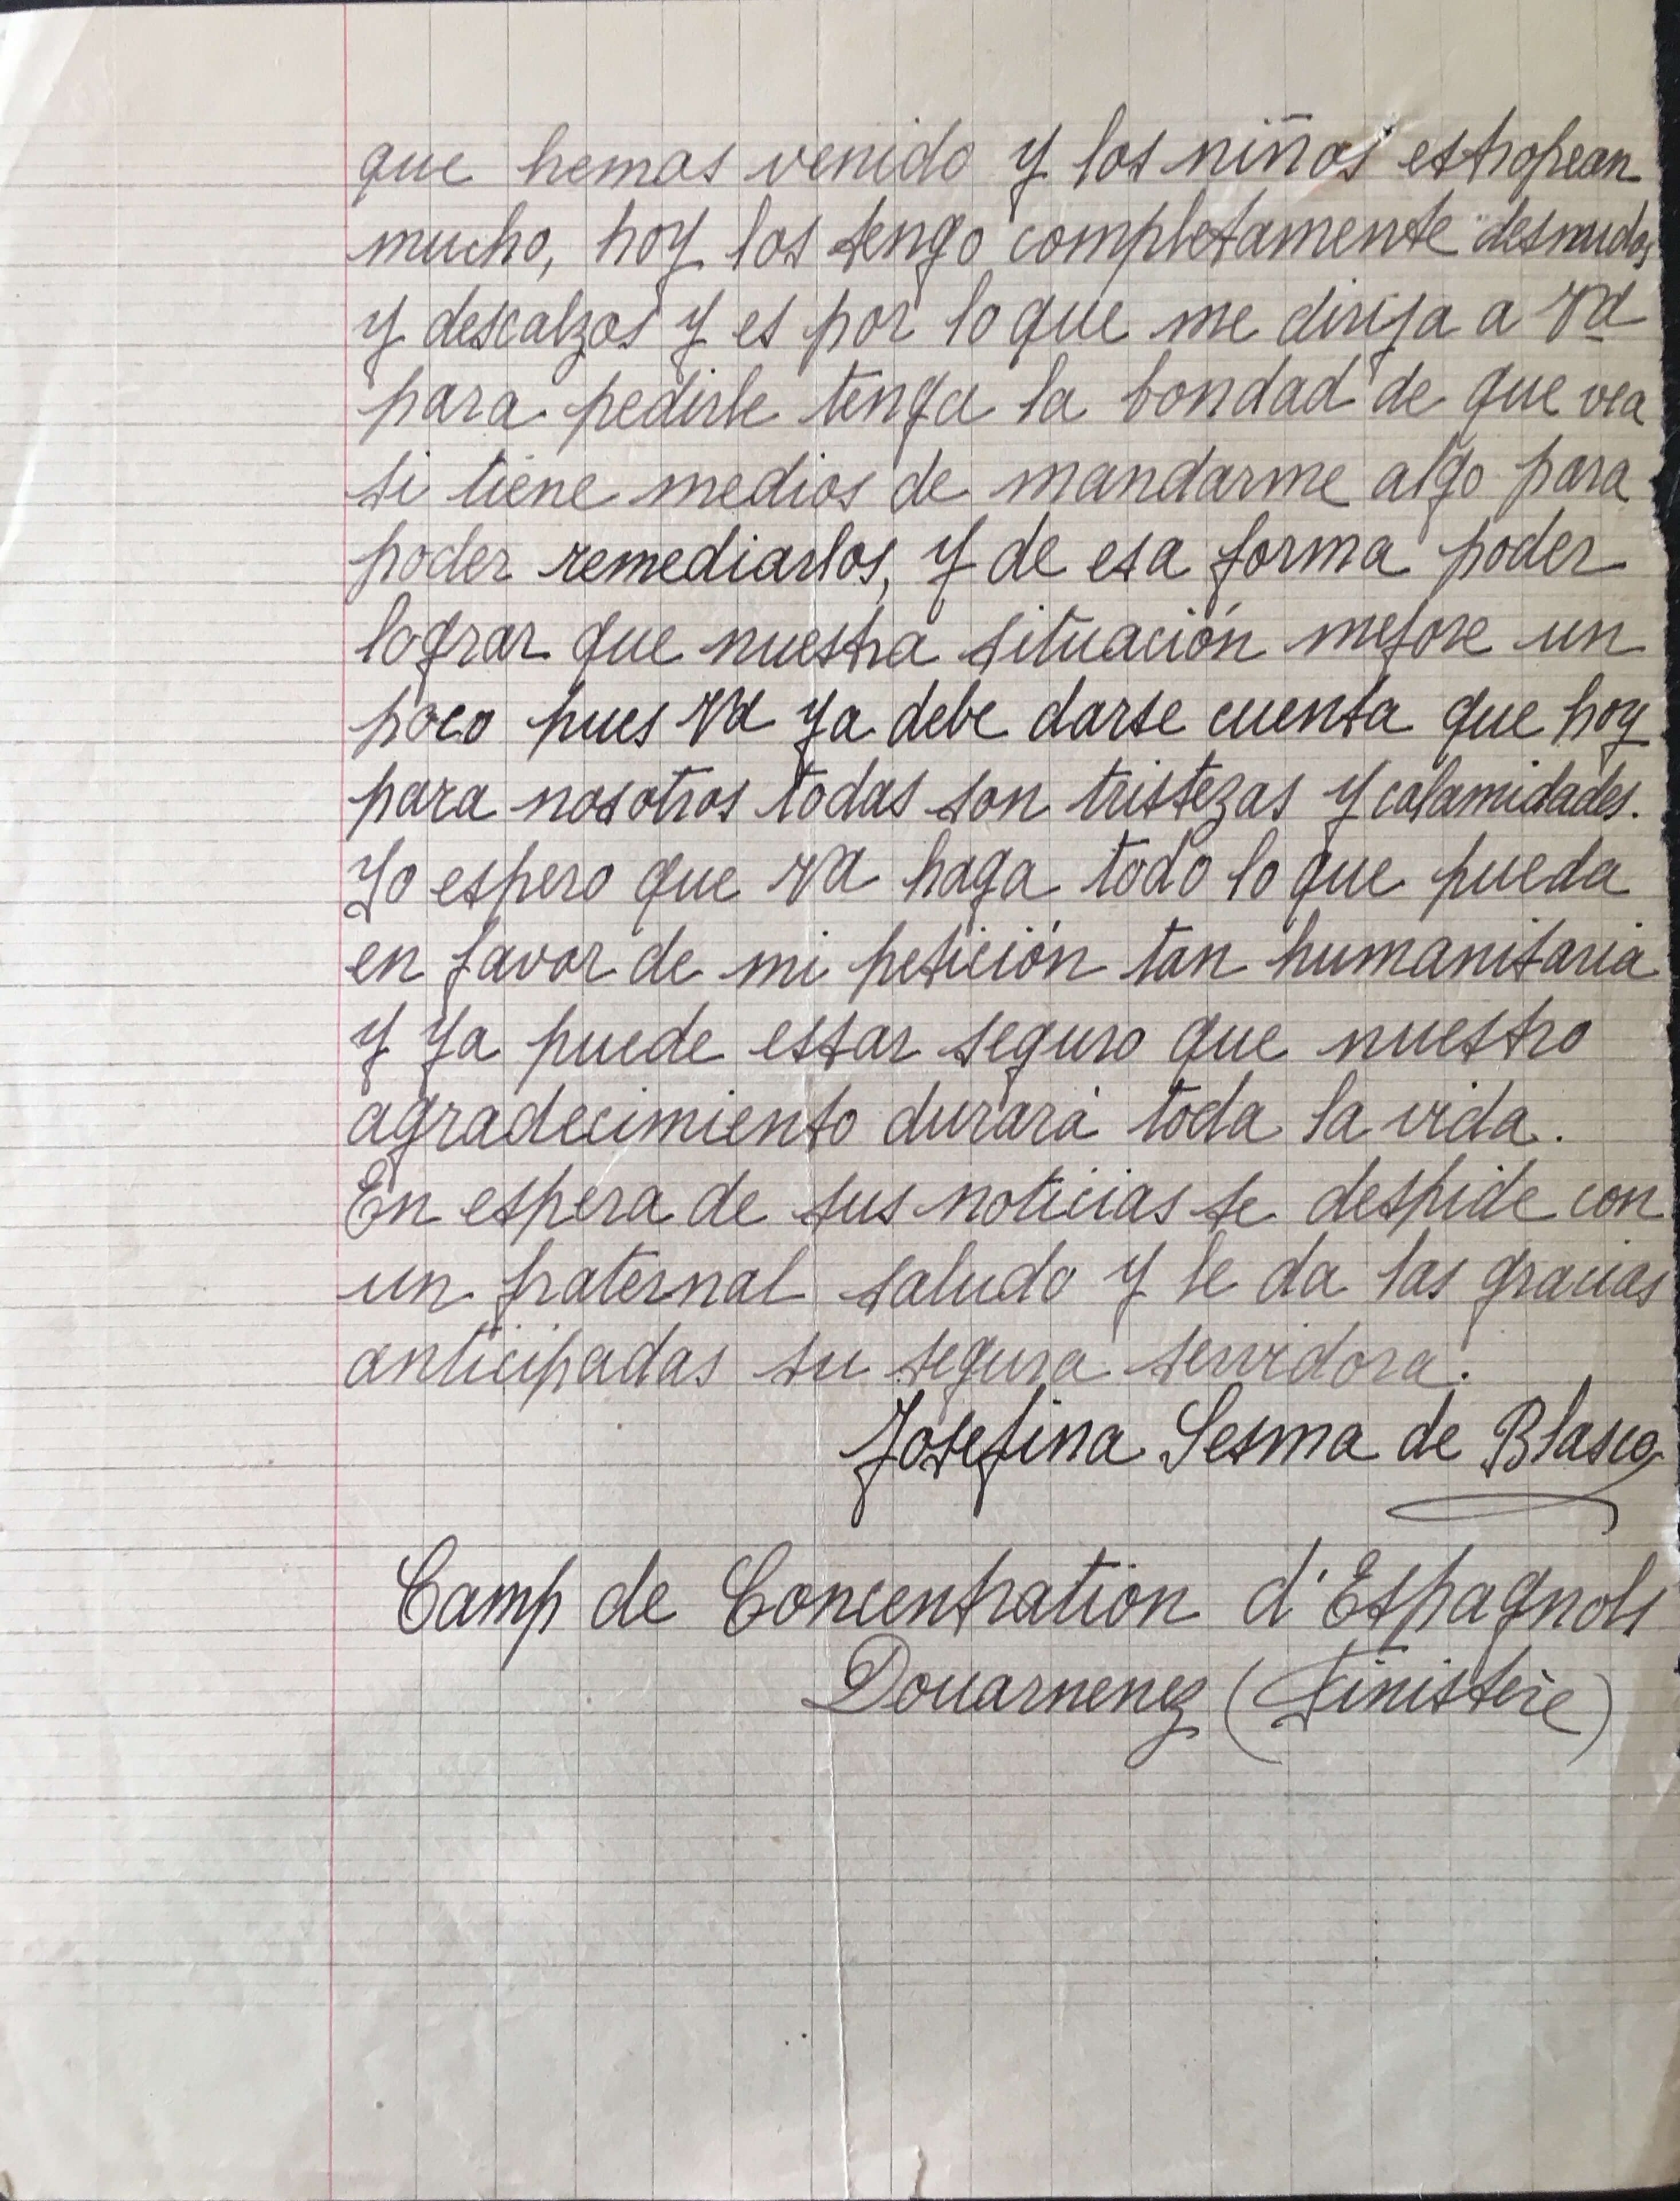 que hemos venido y los niños estropean
mucho, hoy los tengo completamente desnudos
y descalzos y es por lo que me dirija a Vd
para pedirle tenga la bondad de que vea
si tiene medios de mandarme algo para
poder remediarlos, y de esa forma poder
lograr que nuestra situación mejore un
poco pues Vd ya debe darse cuenta que hoy
para nosotros todas son tristezas y calamidades.
Yo espero que Vd haga todo lo que pueda
en favor de mi petición tan humanitaria
y ya puede estar seguro que nuestro
agradecimiento durará toda la vida.
En espera de sus noticias se despide con
un fraternal saludo y le da las gracias
anticipadas su segura servidora.
Josefina Sesma de Blasco
Camp de Concentration d'Espagnols
Douarnenez (Finistère)